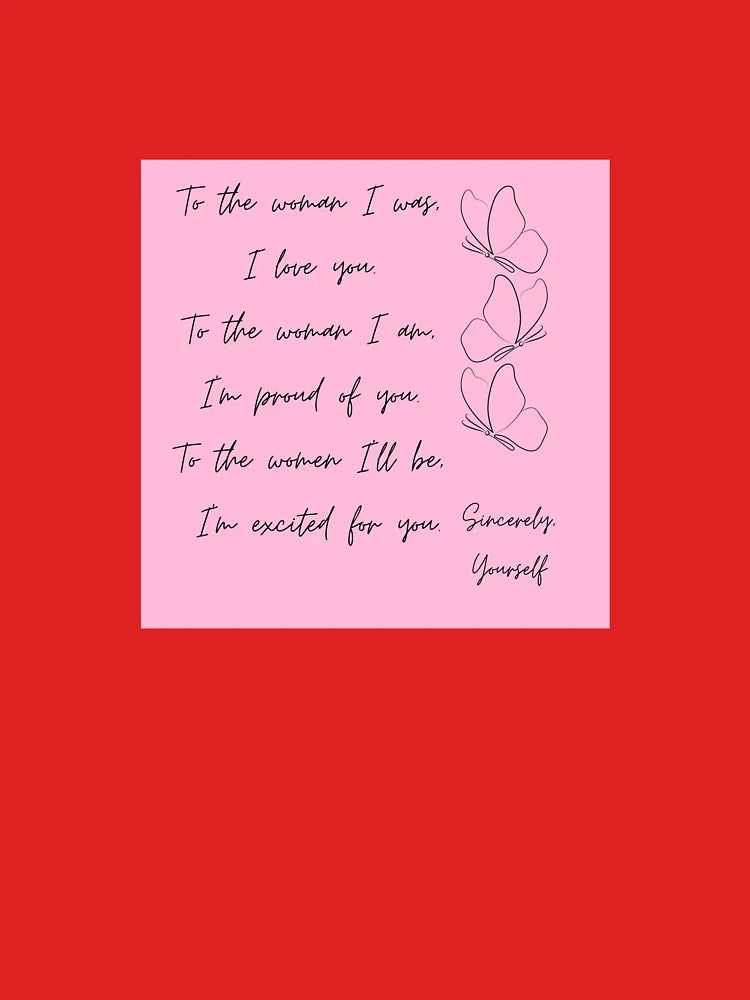 To the woman I was,
I love you.
To the woman I am,
I'm proud of you.
To the women I'll be,
I'm excited for you.
Sincerely,
Yourself